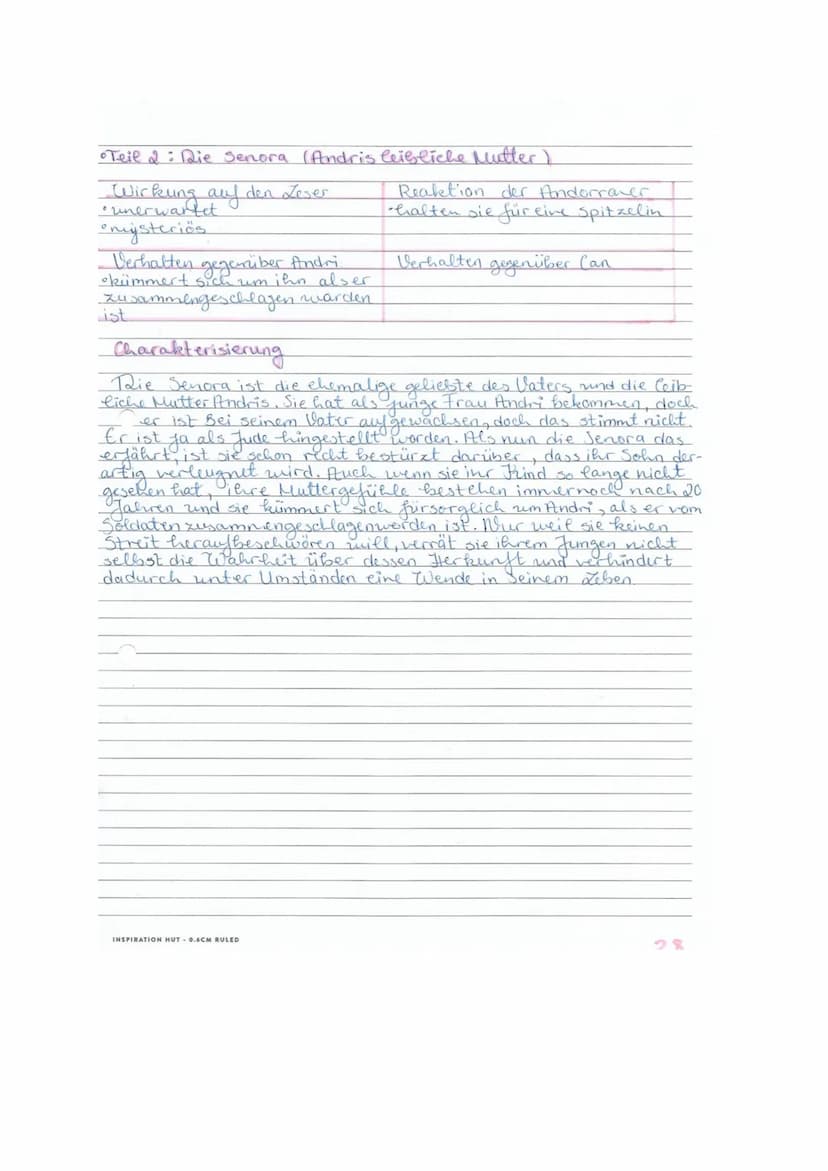 •Teil 2: Die Senora (Andris leibliche Mutter)
Wirkung auf den Leser
•unerwartet
•mysteriös
Reaktion der Andorraner
•halten sie für eine Spitzelin
Verhalten gegenüber Andri
•kümmert sich um ihn als er
zusammengeschlagen warden
ist
Verhalten gegenüber Can
Charakterisierung
Die Senora ist die ehemalige geliebte des Vaters und die leib-
liche Mutter Andris. Sie hat als junge Frau Andri bekommen, doch
er ist Bei seinem Vater aufgewachsen, doch das stimmt nicht.
Er ist ja als Jude hingestellt worden. Als nun die Senora das
erfährt, ist sie schon recht bestürzt darüber, dass ihr Sohn der-
artig verleugnet wird. Auch wenn sie ihr Kind so lange nicht
gesehen hat, ihre Muttergefühle bestehen immernoch nach 20
Jahren und sie kümmert sich fürsorglich um Andri, als er vom
Soldaten zusammengeschlagenwerden ist. Nur weil sie keinen
Streit heraufbeschwören will, verrät sie ihrem Jungen nicht
selbst die Wahrheit über dessen Herkunft und verhindert
dadurch unter Umständen eine Wende in Seinem Leben.
INSPIRATION HUT - 0.6CM RULED
28